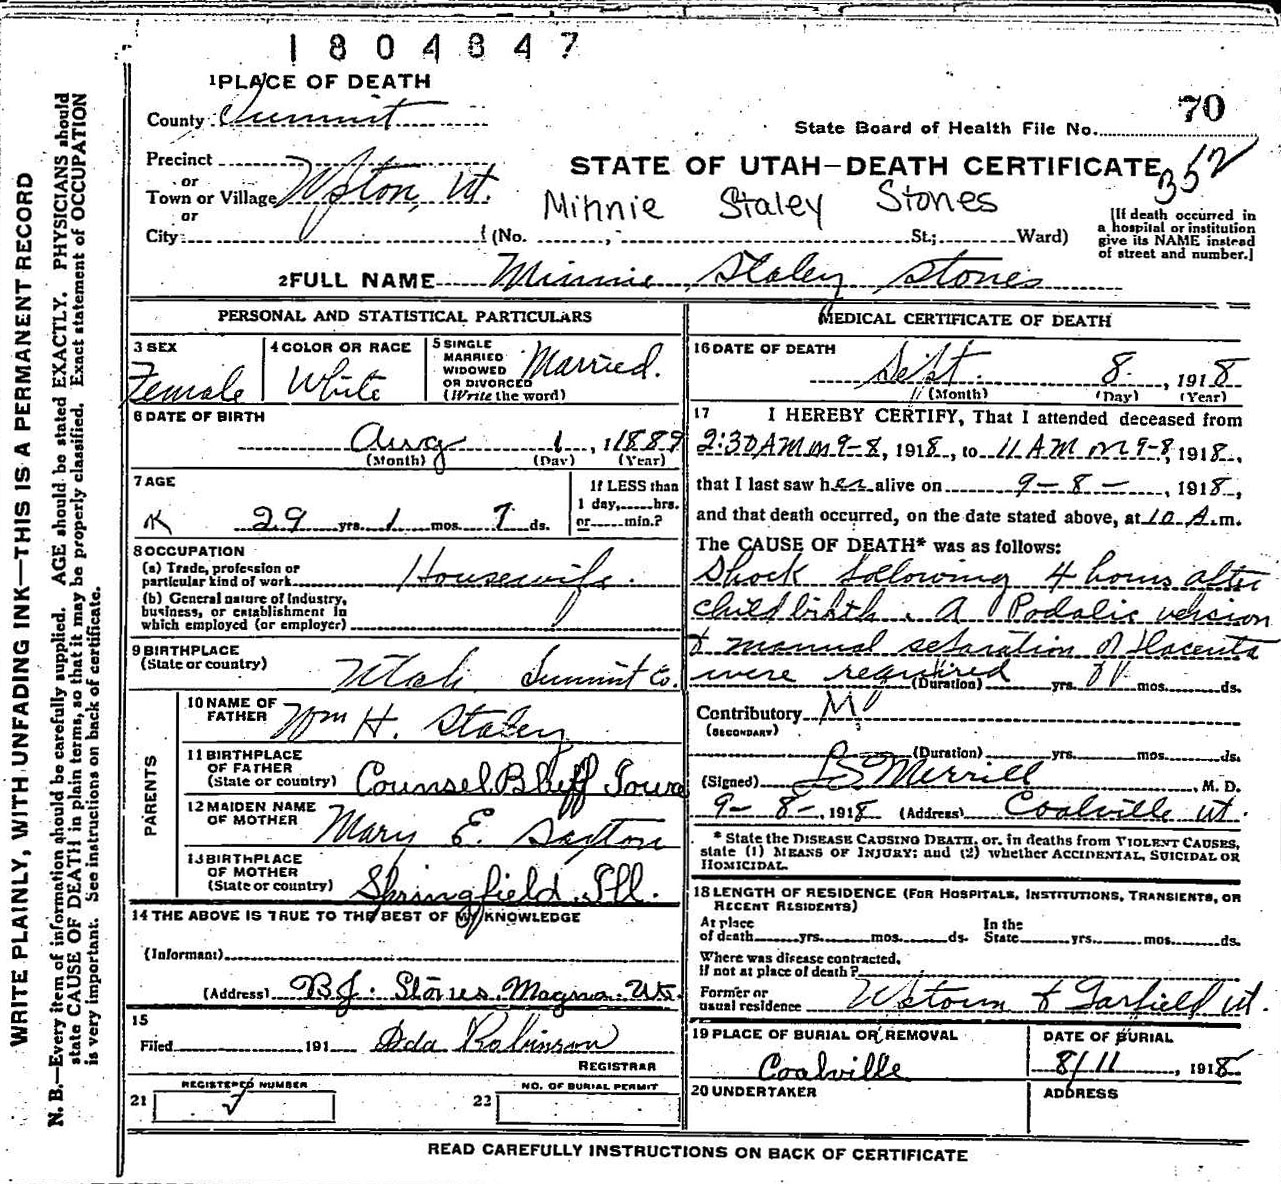 1804847
1 PLACE OF DEATH
County Summit
70
State Board of Health File No.
Precinct
or
Town or Village Upton, Ut.
or
City (No. , St.; Ward)
STATE OF UTAH—DEATH CERTIFICATE
352
Minnie Staley Stones
[If death occurred in
a hospital or institution
give its NAME instead
of street and number.]
2 FULL NAME Minnie Staley Stones
PERSONAL AND STATISTICAL PARTICULARS
3 SEX
Female
4 COLOR OR RACE
White
5 SINGLE
MARRIED
WIDOWED
OR DIVORCED
(Write the word)
Married.
6 DATE OF BIRTH
Aug 1, 1889
(Month) (Day) (Year)
7 AGE
29 yrs. 1 mos. 7 ds.
If LESS than
1 day, hrs.
or min.?
8 OCCUPATION
(a) Trade, profession or
particular kind of work Housewife.
(b) General nature of industry,
business, or establishment in
which employed (or employer)
9 BIRTHPLACE
(State or country) Utah Summit Co.
PARENTS
10 NAME OF
FATHER Wm H. Staley
11 BIRTHPLACE
OF FATHER
(State or country) Counsel Bluff Iowa
12 MAIDEN NAME
OF MOTHER Mary E. Saxton
13 BIRTHPLACE
OF MOTHER
(State or country) Springfield, Ill.
14 THE ABOVE IS TRUE TO THE BEST OF MY KNOWLEDGE
(Informant)
(Address) B J. Stones. Magna. Ut.
15
Filed 191 Ada Robinson
REGISTRAR
REGISTERED NUMBER
21
NO. OF BURIAL PERMIT
22
MEDICAL CERTIFICATE OF DEATH
16 DATE OF DEATH
Sept. 8, 1918
(Month) (Day) (Year)
17 I HEREBY CERTIFY, That I attended deceased from
2:30 AM on 9-8, 1918, to 11 AM on 9-8, 1918,
that I last saw her alive on 9-8-, 1918,
and that death occurred, on the date stated above, at 10 A.m.
The CAUSE OF DEATH* was as follows:
Shock following 4 hours after
childbirth. A Podalic version
& manual separation of Placenta
were required
(Duration) yrs. mos. ds.
Contributory
(SECONDARY)
(Duration) yrs. mos. ds.
(Signed) Merrill, M. D.
9-8-, 1918 (Address) Coalville Ut.
* State the DISEASE CAUSING DEATH, or, in deaths from VIOLENT CAUSES,
state (1) MEANS OF INJURY; and (2) whether ACCIDENTAL, SUICIDAL OR
HOMICIDAL.
18 LENGTH OF RESIDENCE (FOR HOSPITALS, INSTITUTIONS, TRANSIENTS, OR
RECENT RESIDENTS)
At place
of death yrs. mos. ds.
In the
State yrs. mos. ds.
Where was disease contracted,
If not at place of death?
Former or
usual residence Garfield Ut.
19 PLACE OF BURIAL OR REMOVAL
Coalville
DATE OF BURIAL
8/11, 1918
20 UNDERTAKER
ADDRESS
READ CAREFULLY INSTRUCTIONS ON BACK OF CERTIFICATE
WRITE PLAINLY, WITH UNFADING INK—THIS IS A PERMANENT RECORD
N. B.—Every item of information should be carefully supplied. AGE should be stated EXACTLY. PHYSICIANS should
state CAUSE OF DEATH in plain terms, so that it may be properly classified. Exact statement of OCCUPATION
is very important. See instructions on back of certificate.